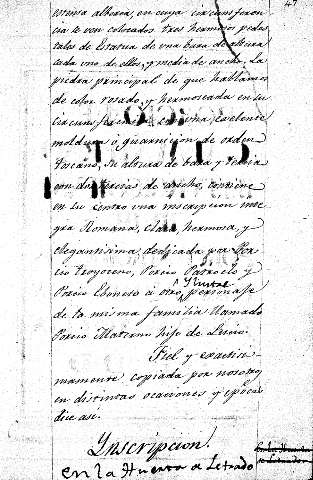 47
extensa alberca, en cuya circunsferen
cia se ven colocados tres hermosos pedes
tales de Estatua de una bara de altura
cada uno de ellos, y media de ancho. La
piedra principal de que hablamos
de color rosado, y hermoseada en su
circunsferencia con una excelente
moldura o guarnicion de orden
toscano, su altura de bara y tercia
con dos tercias de ancho, contiene
en su centro una inscripcion inte
gra Romana, clara, hermosa, y
elegantisima dedicada por
cio Porcio Patroclo y
Porcio á otro Ilustre personage
de la misma familia llamado
Porcio Materno hijo de Lucio.
Fiel y exactisi
mamente copiada por nosotros
en distintas ocasiones y epocas
dice asi.
Ynscripcion.
en la Huerta de Letrado